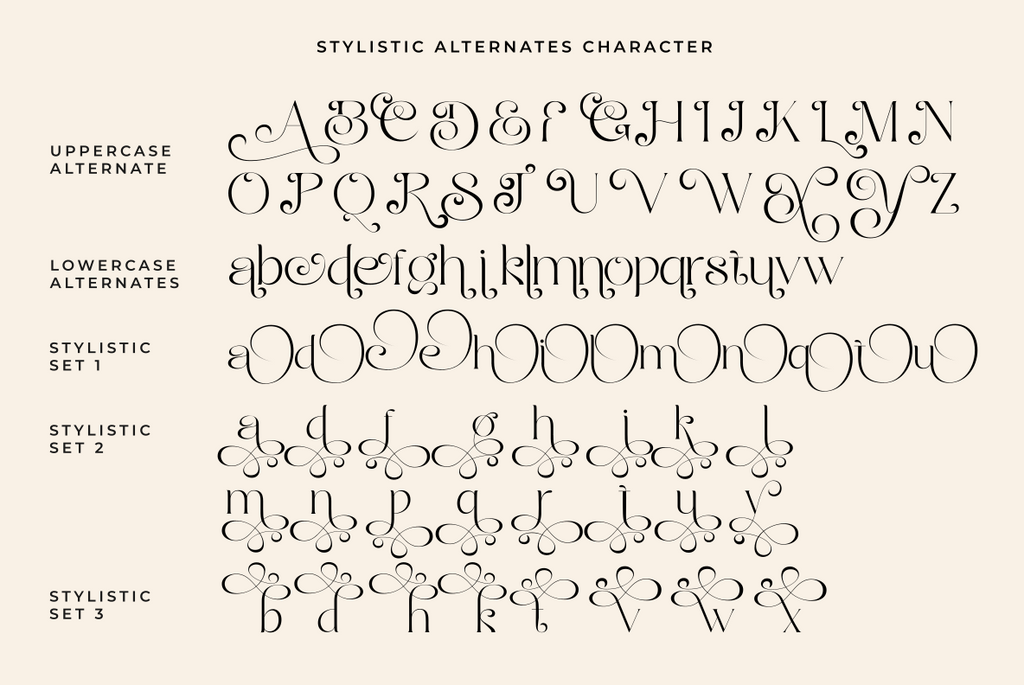 STYLISTIC ALTERNATES CHARACTER
UPPERCASE
ALTERNATE
A B C D E F G H I J K L M N
O P Q R S T U V W X Y Z
LOWERCASE
ALTERNATES
a b c d e f g h j k l m n o p q r s t u y v w
STYLISTIC
SET 1
a d c e h i l m n q t u
STYLISTIC
SET 2
a d f g h i k l
m n p q r t u v
STYLISTIC
SET 3
b d h k t v w x